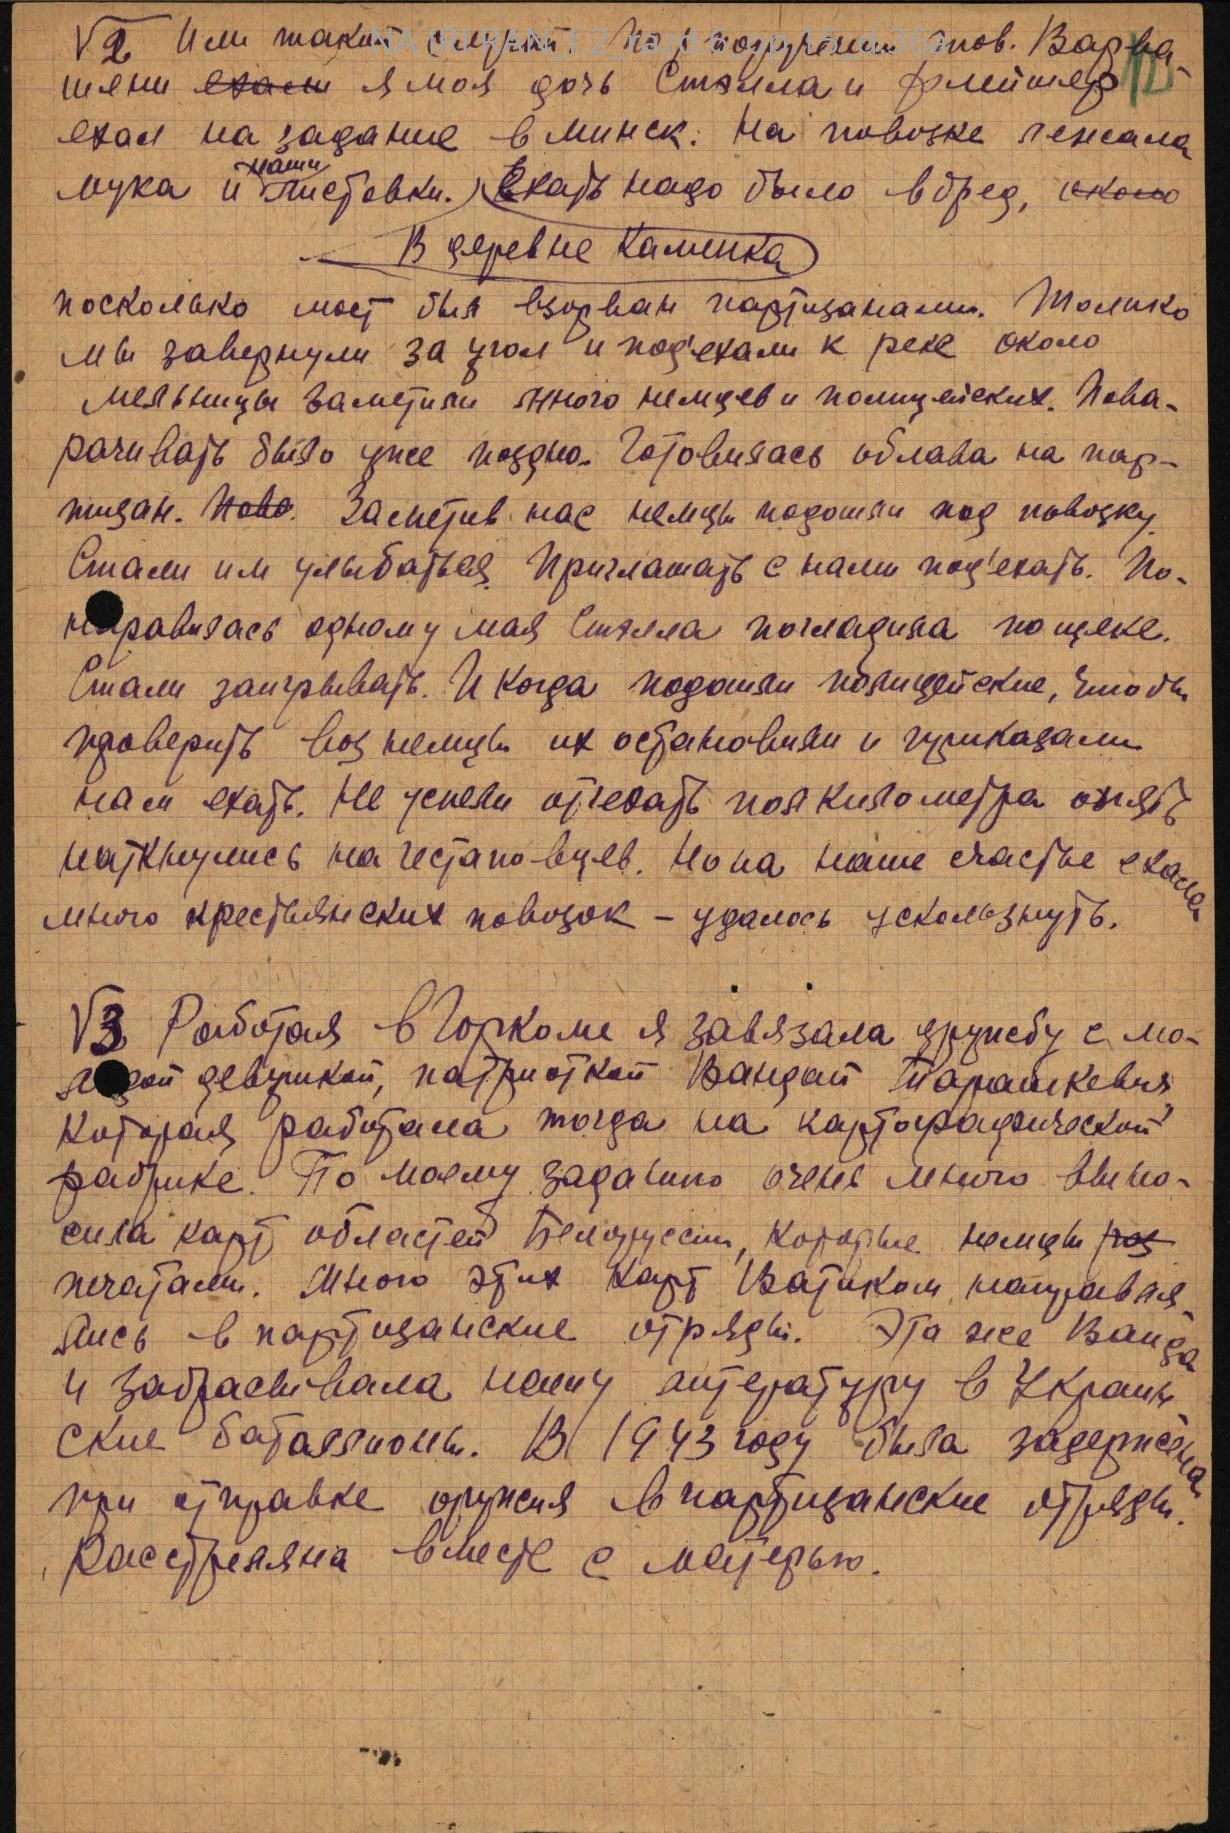 √2 Или такой случай По поручению тов. Варва-
шени ехали я моя дочь Стэлла и фельдшер
ехал на задание в Минск. На повозке лежала
мука и наши листовки. Ехать надо было вброд, около
В деревне Каменка
посколько мост был взорван партизанами. Только
мы завернули за угол и под'ехали к реке около
мельницы заметили много немцев и полицейских. Пова-
рачивать было уже поздно. Готовилась облава на пар-
тизан. Пово. Заметив нас немцы подошли под повозку.
Стали им улыбаться. Приглашать с нами под'ехать. По-
нравилась одному мая Стэлла погладила по щеке.
Стали заигрывать. И когда подошли полицейские, чтобы
проверить воз немцы их остановили и приказали
нам ехать. Не успели от'ехать пол километра опять
наткнулись на гестаповцев. Но на наше счастье ехали
много крестьянских повозок – удалось ускользнуть.
√3 Работая в Горкоме я завязала дружбу с мо-
лодой девушкой, патриоткой Вандай Тарашкевич,
которая работала тогда на картографической
фабрике. По моему заданию очень много выно-
сила карт областей Белоруссии, которые немцы
печатали. Много этих карт Ватиком направля-
лись в партизанские отряды. Эта же Ванда
и забрасывала нашу литературу в Украин-
ские батальоны. В 1943 году была задержена
при отправке оружия в партизанские отряды.
Расстреляна вместе с матерью.